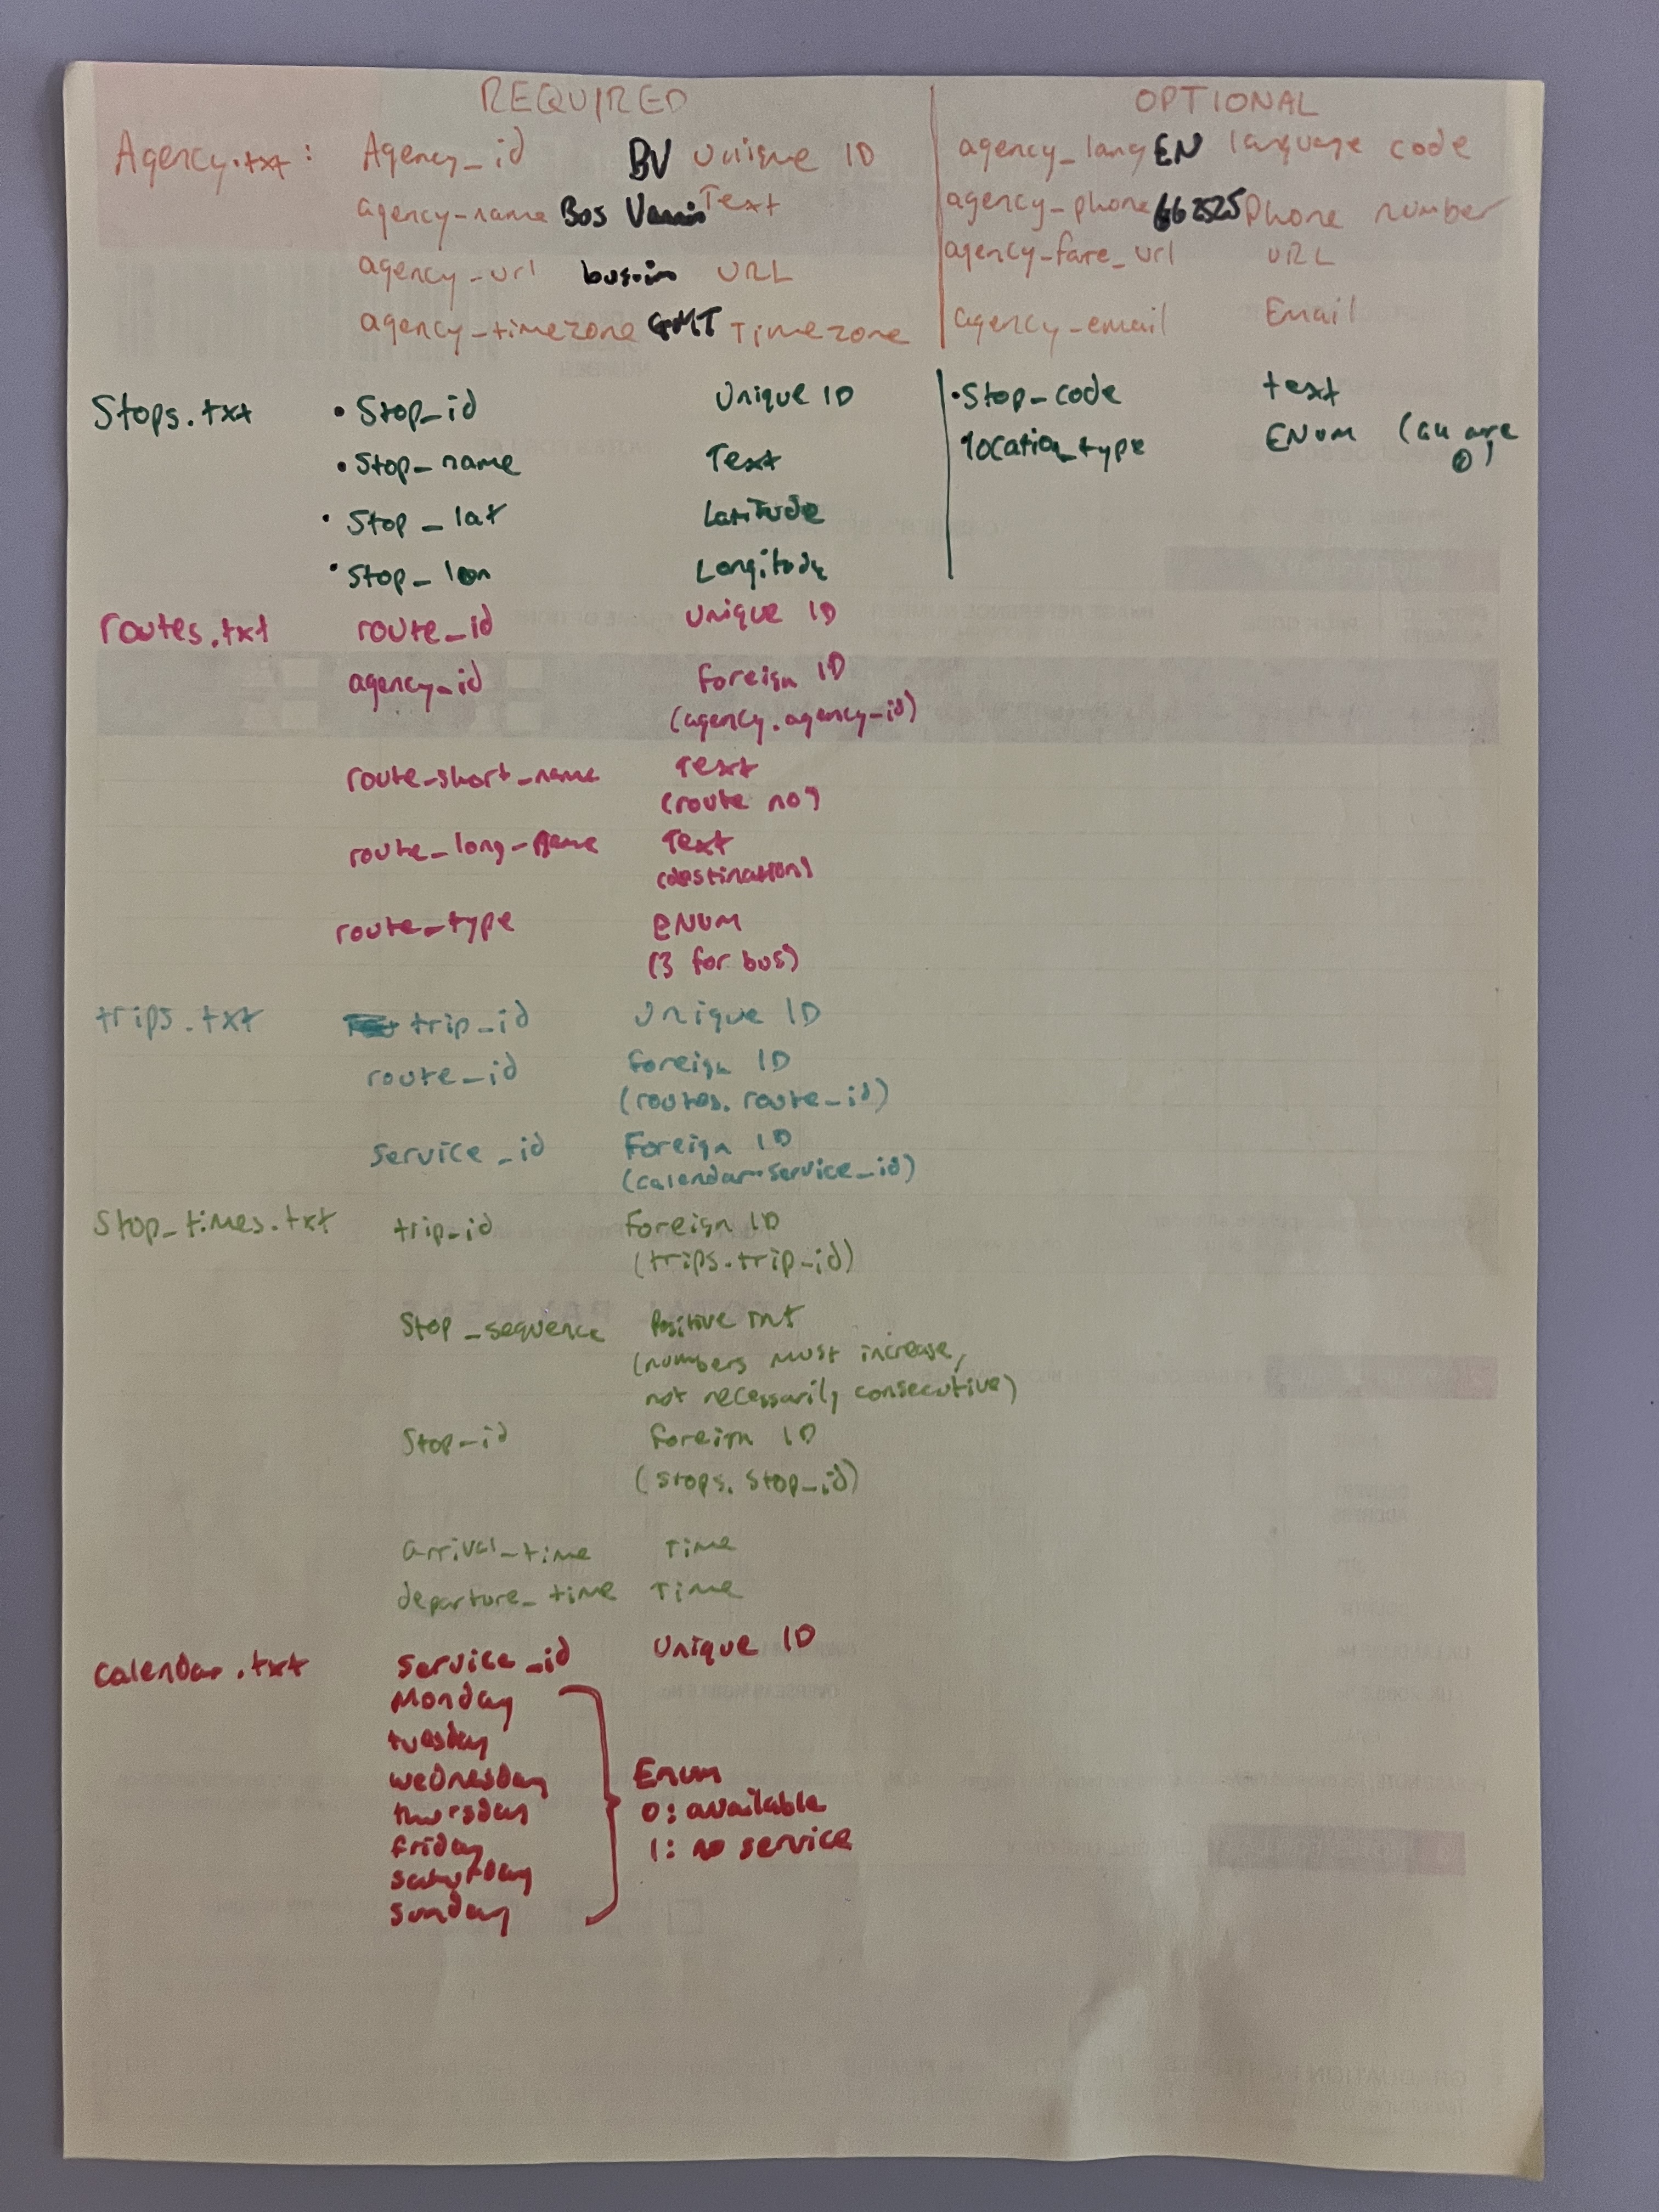 REQUIRED OPTIONAL
Agency.txt: Agency_id BV Unique ID agency_lang EN language code
agency_name Bos Vannin Text agency_phone 662525 Phone number
agency_url bus.im URL agency_fare_url URL
agency_timezone GMT Timezone agency_email Email
Stops.txt • Stop_id Unique ID • Stop_code text
• Stop_name Text location_type ENUM (all are 0)
• Stop_lat Latitude
• Stop_lon Longitude
routes.txt route_id Unique ID
agency_id Foreign ID
(agency.agency_id)
route_short_name Text
(route no)
route_long_name Text
(destination)
route_type ENUM
(3 for bus)
trips.txt trip_id Unique ID
route_id Foreign ID
(routes.route_id)
service_id Foreign ID
(calendar.service_id)
Stop_times.txt trip_id Foreign ID
(trips.trip_id)
Stop_sequence Positive Int
(numbers must increase,
not necessarily consecutive)
Stop_id Foreign ID
(stops.stop_id)
arrival_time Time
departure_time Time
calendar.txt service_id Unique ID
Monday
tuesday
wednesday Enum
thursday 0: available
friday 1: no service
saturday
sunday